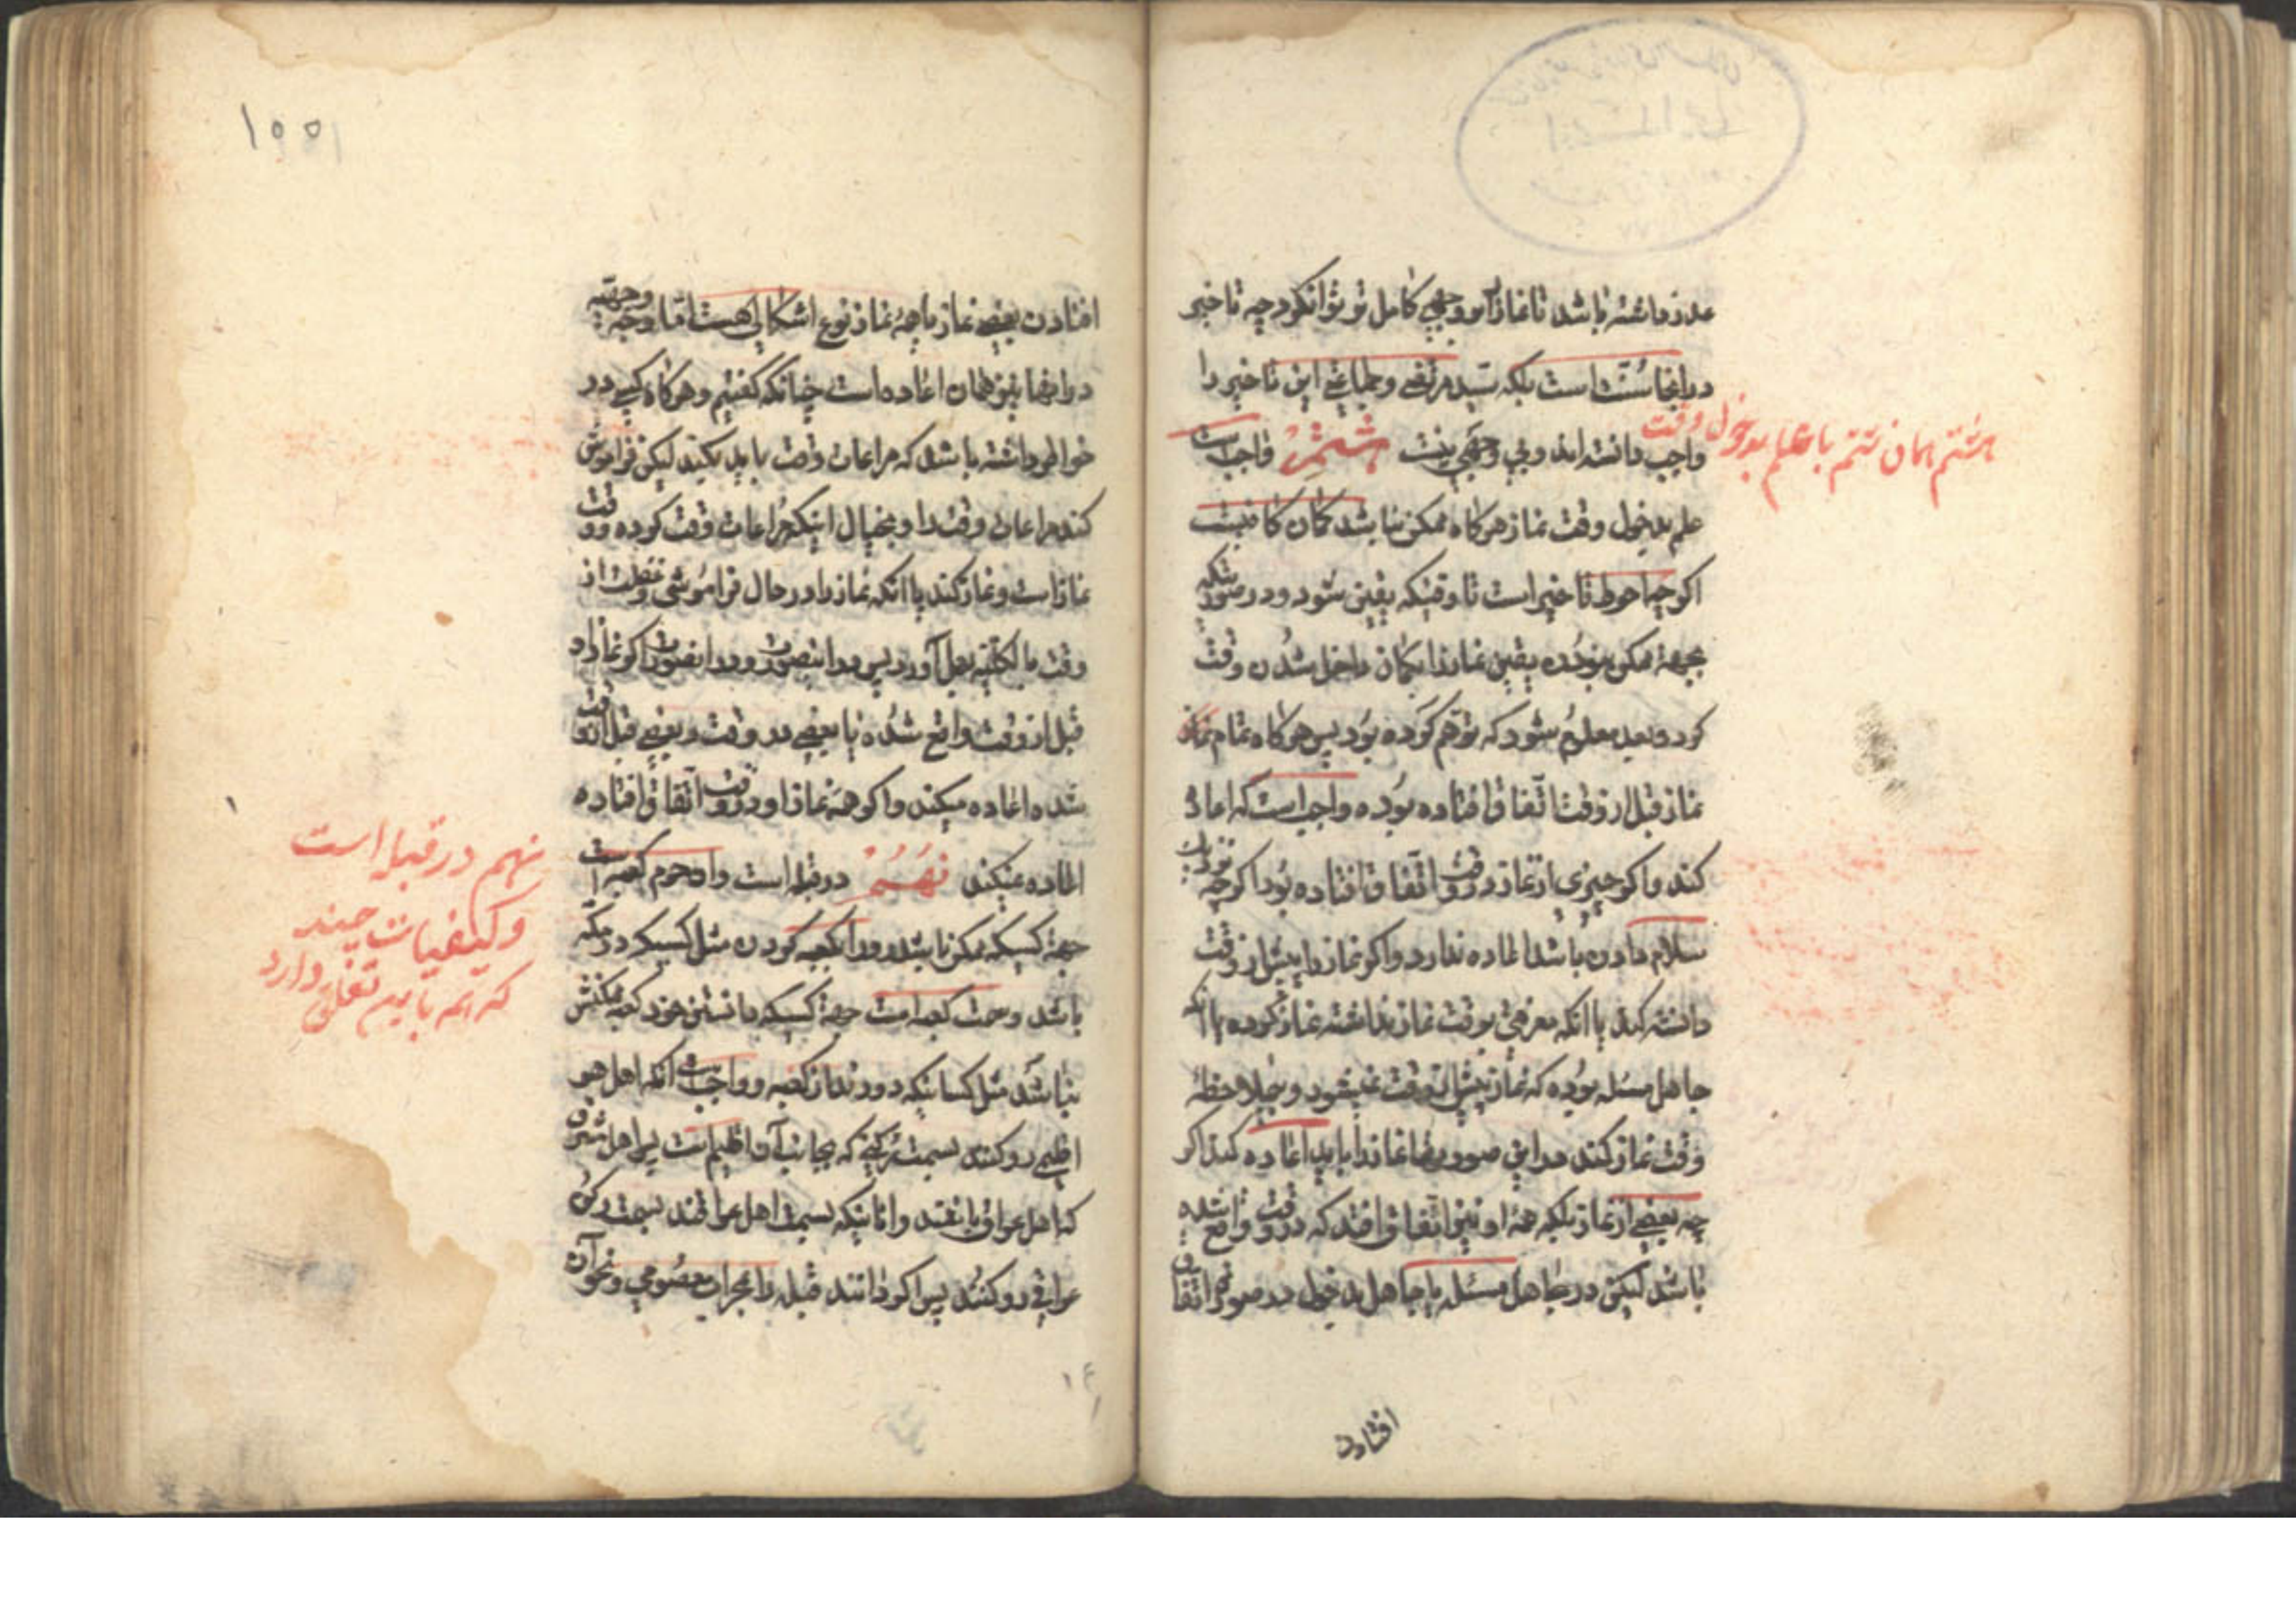 عذر داشته باشد تا نماز را بر وجهی کامل تر تواند کرد چه تاخیر
در اینجا سُنّت است بلکه سیّد مرتضی و جماعتی این تاخیر را
واجب دانسته‌اند و بی وجهی نیست هشتم واجب است
هشتم همان ششم با علم بدخول وقت
علم بدخول وقت نماز هرکاه ممکن نباشد کمان کافیست
اکرچه احوط تاخیر است تا وقتیکه یقین شود و در صورتیکه
بجهة ممکن نبودن یقین نماز را بکمان داخل شدن وقت
کرد و بعد معلوم شود که توهّم کرده بود پس هرکاه تمام
نماز قبل از وقت اتّفاق افتاده بوده واجب است که اعاده
کند و اکر چیزی از نماز در وقت اتّفاق افتاده بود اکرچه
سلام دادن باشد اعاده ندارد و اکر نماز را پیش از وقت
دانسته کند یا آنکه معرفتی بوقت نماز نداشته نماز کرده یا آنکه
جاهل مسئله بوده که نماز پیش از وقت نمیشود و بی‌ملاحظهٔ
وقت نماز کند در این صورتها نماز را باید اعاده کند اکر
چه بعضی از نماز بلکه همهٔ او نیز اتّفاق افتد که در وقت واقع شده
باشد لیکن در جاهل مسئله یا جاهل بدخول در صورت اتّفاق
افتادن
افتادن بعضی نماز یا همهٔ نماز نوع اشکالی هست امّا وجه
در اینها نیز همان اعاده است چنانکه کفتیم و هرکاه کسی در
خواطر داشته باشد که مراعات وقت باید بکند لیکن فراموش
کند مراعات وقت را و بخیال اینکه مراعات وقت کرده و وقت
نماز است و نماز کند یا آنکه نماز را در حال فراموشی و غفلت از
وقت بالکلیّه بعمل آورد پس در اینصورت و در اینصورت اکر نماز او
قبل از وقت واقع شده یا بعضی در وقت و بعضی قبل از وقت
شده اعاده میکند و اکر همهٔ نماز او در وقت اتّفاق افتاده
اعاده نمیکند نهُم در قبله است و او حرم کعبه است
نهم در قبله است
و کیفیات چند
که نیز باین تعلق دارد
جهة کسیکه ممکن باشد رو را بکعبه کردن مثل کسیکه در مکّه
باشد و سمت کعبه است جهة کسیکه دانستن خود کعبه ممکنش
نباشد مثل کسانیکه دورند از کعبه و واجب است آنکه اهل هر
اقلیمی رو کنند بسمت رکنی که بجانب آن اقلیم است پس اهل مشرق
که اهل عراق باشند و آنانیکه بسمت اهل عراقند بسمت رکن
عراقی رو کنند پس اکر دانند قبله را بمحراب معصومی و نحو آن